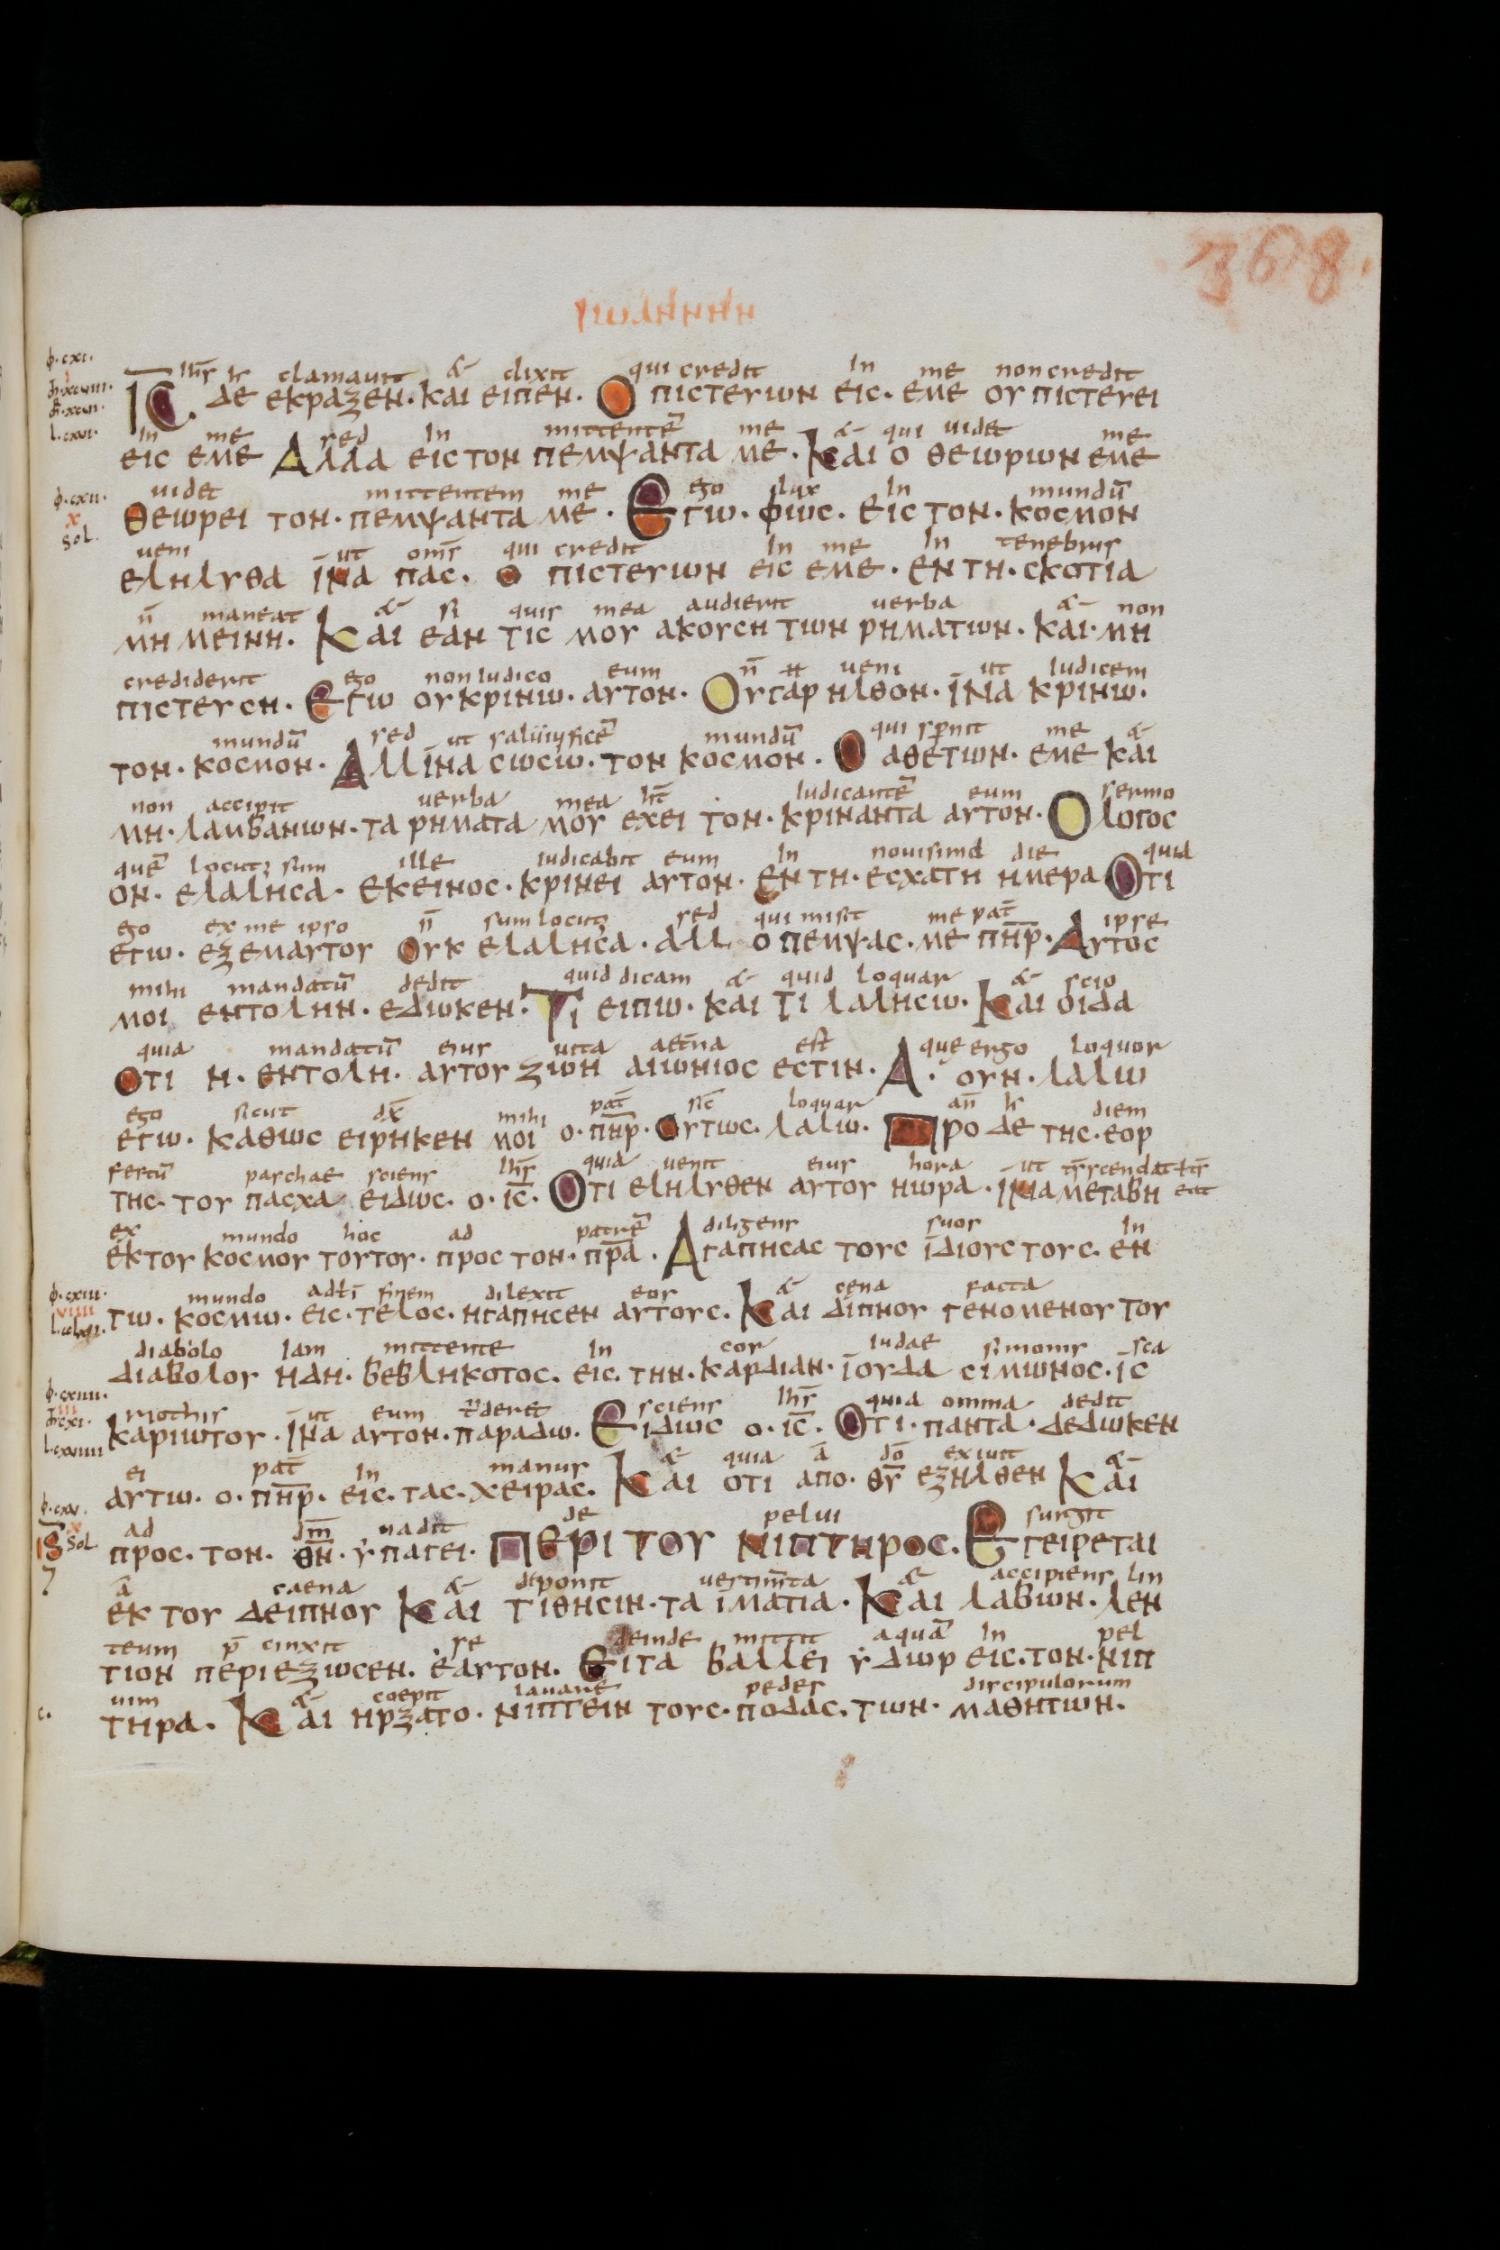 368.
ΙΩΑΗΝΗΝ
ihs h̄ clamauit & dixit qui credit in me non credit
ΙC̅. ΔΕ ΕΚΡΑΖΕΝ· ΚΑΙ ΕΙΠΕΝ· Ο ΠΙCΤΕΥΩΝ ΕΙC· ΕΜΕ ΟΥ ΠΙCΤΕΥΕΙ
in me sed in mittentē me & qui uidet me
ΕΙC ΕΜΕ ΑΛΛΑ ΕΙC ΤΟΝ ΠΕΜΨΑΝΤΑ ΜΕ· ΚΑΙ Ο ΘΕΩΡΩΝ ΕΜΕ
uidet mittentem me ego lux in mundū
ΘΕΩΡΕΙ ΤΟΝ· ΠΕΜΨΑΝΤΑ ΜΕ· ΕΓΩ· ΦΩC· ΕΙC ΤΟΝ· ΚΟCΜΟΝ
ueni ut om̄s qui credit in me in tenebris
ΕΛΗΛΥΘΑ ΙΝΑ ΠΑC· Ο ΠΙCΤΕΥΩΝ ΕΙC ΕΜΕ· ΕΝ ΤΗ· CΚΟΤΙΑ
n̄ maneat & si quis mea audierit uerba & non
ΜΗ ΜΕΙΝΗ· ΚΑΙ ΕΑΝ ΤΙC ΜΟΥ ΑΚΟΥCΗ ΤΩΝ ΡΗΜΑΤΩΝ· ΚΑΙ· ΜΗ
crediderit ego non iudico eum n̄ ueni ut iudicem
ΠΙCΤΕΥCΗ· ΕΓΩ ΟΥ ΚΡΙΝΩ· ΑΥΤΟΝ· ΟΥ ΓΑΡ ΗΛΘΟΝ· ΙΝΑ ΚΡΙΝΩ·
mundū sed ut saluificē mundū qui spnit me &
ΤΟΝ· ΚΟCΜΟΝ· ΑΛΛ ΙΝΑ CΩCΩ· ΤΟΝ ΚΟCΜΟΝ· Ο ΑΘΕΤΩΝ· ΕΜΕ ΚΑΙ
non accipit uerba mea ht̄ iudicantē eum sermo
ΜΗ· ΛΑΜΒΑΝΩΝ· ΤΑ ΡΗΜΑΤΑ ΜΟΥ ΕΧΕΙ ΤΟΝ· ΚΡΙΝΑΝΤΑ ΑΥΤΟΝ· Ο ΛΟΓΟC
quē locut; sum ille iudicabit eum in nouisima die quia
ΟΝ· ΕΛΑΛΗCΑ· ΕΚΕΙΝΟC· ΚΡΙΝΕΙ ΑΥΤΟΝ· ΕΝ ΤΗ· ΕCΧΑΤΗ ΗΜΕΡΑ ΟΤΙ
ego ex me ipso n̄ sum locut; sed qui misit me pat̄ ipse
ΕΓΩ· ΕΞ ΕΜΑΥΤΟΥ ΟΥΚ ΕΛΑΛΗCΑ· ΑΛΛ Ο ΠΕΜΨΑC· ΜΕ ΠΗ̅Ρ· ΑΥΤΟC
mihi mandatū dedit quid dicam & quid loquar & scio
ΜΟΙ ΕΝΤΟΛΗΝ· ΕΔΩΚΕΝ· ΤΙ ΕΙΠΩ· ΚΑΙ ΤΙ ΛΑΛΗCΩ· ΚΑΙ ΟΙΔΑ
quia mandatū eius uita aet̄na est que ergo loquor
ΟΤΙ Η· ΕΝΤΟΛΗ· ΑΥΤΟΥ ΖΩΗ ΑΙΩΝΙΟC ΕCΤΙΝ· Α· ΟΥΝ· ΛΑΛΩ
ego sicut dx̄ mihi pat̄ sic̄ loquar an̄ h̄ diem
ΕΓΩ· ΚΑΘΩC ΕΙΡΗΚΕΝ ΜΟΙ Ο· ΠΗ̅Ρ· ΟΥΤΩC· ΛΑΛΩ· ΠΡΟ ΔΕ ΤΗC· ΕΟΡ
festū paschae sciens ihs̄ quia uenit eius hora ut
ΤΗC· ΤΟΥ ΠΑCΧΑ ΕΙΔΩC· Ο· ΙC̅· ΟΤΙ ΕΛΗΛΥΘΕΝ ΑΥΤΟΥ Η ΩΡΑ· ΙΝΑ ΜΕΤΑΒΗ
ex mundo hoc ad patrē diligens suos in
ΕΚ ΤΟΥ ΚΟCΜΟΥ ΤΟΥΤΟΥ· ΠΡΟC ΤΟΝ· ΠΡ̅Α· ΑΓΑΠΗCΑC ΤΟΥC ΙΔΙΟΥC ΤΟΥC· ΕΝ
mundo finem dilexit eos & cena facta
ΤΩ· ΚΟCΜΩ· ΕΙC· ΤΕΛΟC· ΗΓΑΠΗCΕΝ ΑΥΤΟΥC· ΚΑΙ ΔΙΠΝΟΥ ΓΕΝΟΜΕΝΟΥ ΤΟΥ
diabolo iam mittente in cor iudae simonis sca
ΔΙΑΒΟΛΟΥ ΗΔΗ· ΒΕΒΛΗΚΟΤΟC· ΕΙC· ΤΗΝ· ΚΑΡΔΙΑΝ· ΙΟΥΔΑ CΙΜΩΝΟC· ΙC
riothis ut eum sciens ihs̄ quia omnia dedit
ΚΑΡΙΩΤΟΥ· ΙΝΑ ΑΥΤΟΝ· ΠΑΡΑΔΩ· ΕΙΔΩC Ο· ΙC̅· ΟΤΙ· ΠΑΝΤΑ· ΔΕΔΩΚΕΝ
ei pat̄ in manus & quia ā dō exiuit &
ΑΥΤΩ· Ο· ΠΗ̅Ρ· ΕΙC· ΤΑC· ΧΕΙΡΑC· ΚΑΙ ΟΤΙ ΑΠΟ· ΘΥ̅ ΕΞΗΛΘΕΝ ΚΑΙ
ad dm̄ uadit de pelui surgit
ΠΡΟC· ΤΟΝ· ΘΝ̅· ΥΠΑΓΕΙ· ΠΕΡΙ ΤΟΥ ΝΙΠΤΗΡΟC· ΕΓΕΙΡΕΤΑΙ
ā caena & deponit & accipiens lin
ΕΚ ΤΟΥ ΔΕΙΠΝΟΥ ΚΑΙ ΤΙΘΗCΙΝ· ΤΑ ΙΜΑΤΙΑ· ΚΑΙ ΛΑΒΩΝ· ΛΕΝ
teum p̄cinxit se deinde mittit aquā in pel
ΤΙΟΝ ΠΕΡΙΕΖΩCΕΝ· ΕΑΥΤΟΝ· ΕΙΤΑ ΒΑΛΛΕΙ ΥΔΩΡ ΕΙC· ΤΟΝ· ΝΙΠ
uim & coepit lauare pedes discipulorum
ΤΗΡΑ· ΚΑΙ ΗΡΞΑΤΟ· ΝΙΠΤΕΙΝ ΤΟΥC· ΠΟΔΑC· ΤΩΝ· ΜΑΘΗΤΩΝ·